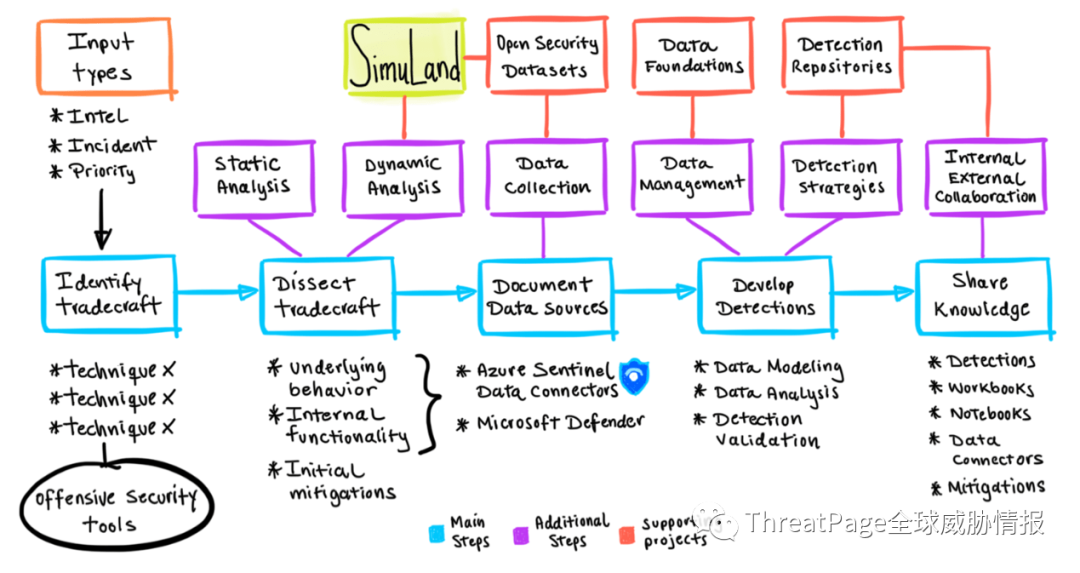 Input
types
* Intel
* Incident
* Priority
SimuLand
Open Security
Datasets
Data
Foundations
Detection
Repositories
Static
Analysis
Dynamic
Analysis
Data
Collection
Data
Management
Detection
Strategies
Internal
External
Collaboration
Identify
tradecraft
Dissect
tradecraft
Document
Data Sources
Develop
Detections
Share
Knowledge
* technique x
* technique x
* technique x
offensive security
tools
* underlying
behavior
* Internal
functionality
* Initial
mitigations
* Azure Sentinel
Data Connectors
* Microsoft Defender
* Data Modeling
* Data Analysis
* Detection
Validation
* Detections
* Workbooks
* Notebooks
* Data
Connectors
* Mitigations
Main
Steps
Additional
Steps
projects
ThreatPage全球威胁情报